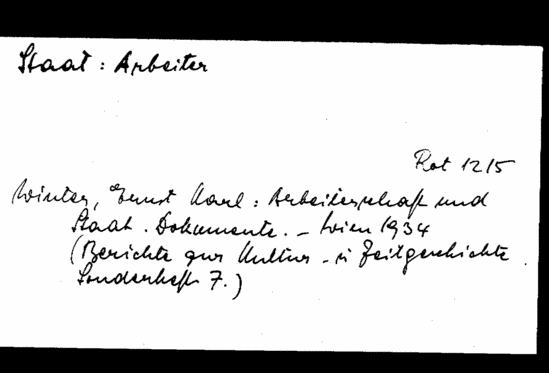 Staat: Arbeiter
Rot 1215
Winter, Ernst Karl: Arbeiterschaft und
Staat. Dokumente. – Wien 1934
(Berichte zur Kultur- u Zeitgeschichte.
Sonderheft 7.)